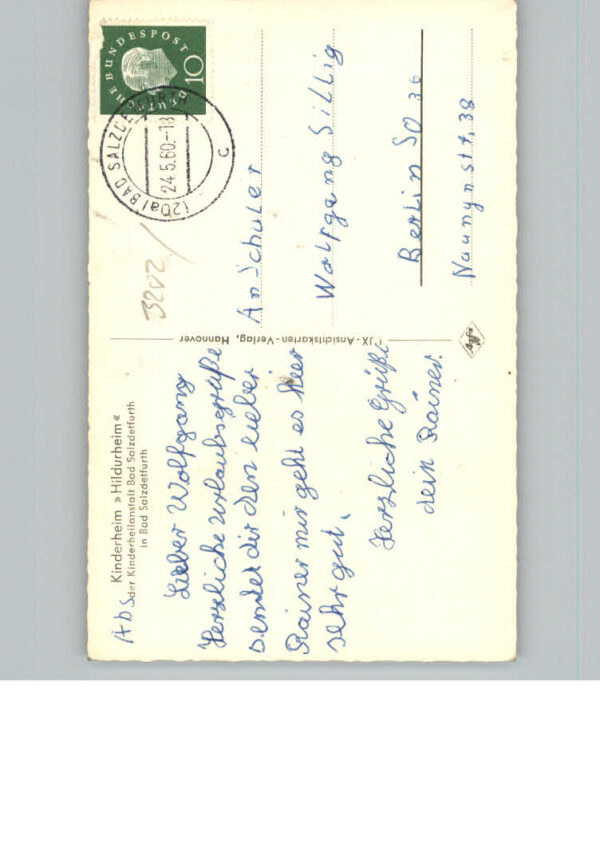 Kinderheim »Hildurheim«
der Kinderheilanstalt Bad Salzdetfurth
in Bad Salzdetfurth
Abs
Lieber Wolfgang
Herzliche Urlaubsgrüße
sendet dir den lieber
Rainer mir geht es hier
sehr gut.
Herzliche Grüße
dein Rainer.
JX-Ansichtskarten-Verlag, Hannover
DEUTSCHE BUNDESPOST
10
(20a) BAD SALZDETFURTH
24.5.60.-18
c
3202
An Schüler
Wolfgang Sillig
Berlin SO 36
Naunynstr. 38